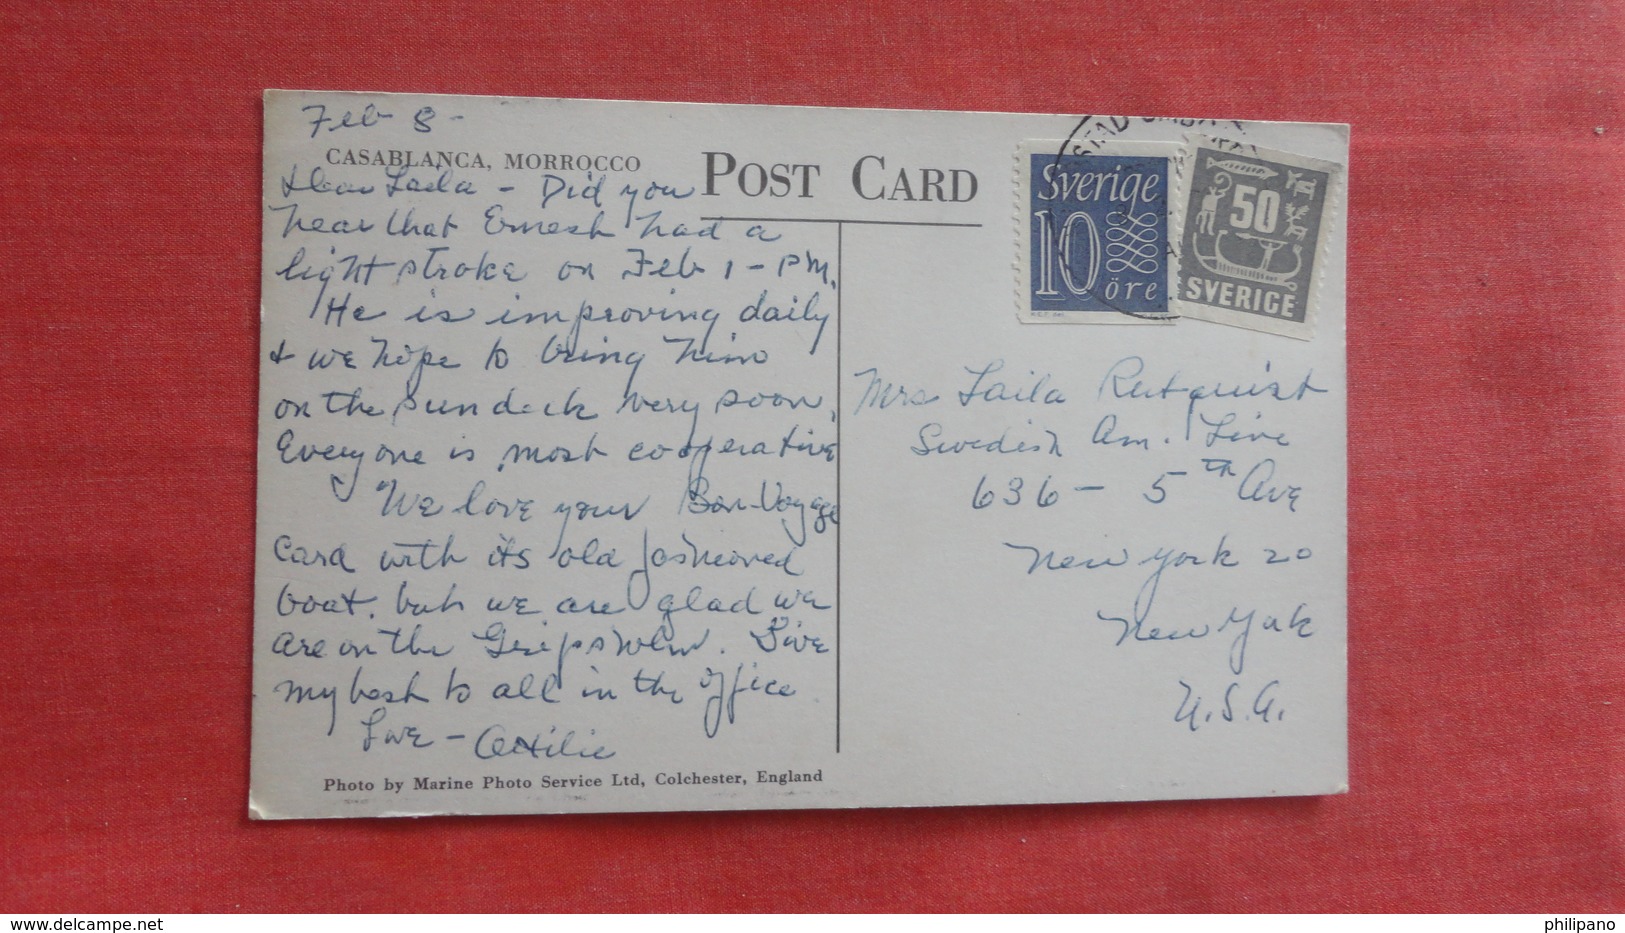 Feb 8 -
CASABLANCA, MORROCCO
Dear Laila - Did you
hear that Ernest had a
light stroke on Feb 1 - PM.
He is improving daily
& we hope to bring him
on the sun deck very soon.
Everyone is most cooperative
We love your Bon-Voyage
card with its old fashioned
boat, but we are glad we
are on the Gripsholm. Give
my best to all in the office
Love -
Photo by Marine Photo Service Ltd, Colchester, England
POST CARD
Sverige
10
öre
50
SVERIGE
Mrs Laila Rutquist
Swedish Am. Line
636 - 5th Ave
New York 20
New York
U.S.A.
delcampe.net
philipano